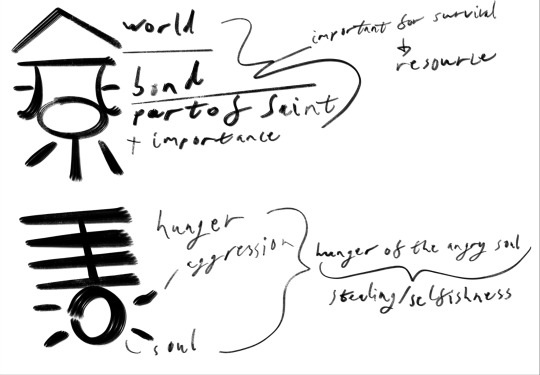 world
important for survival
resource
bond
part of Saint
+ importance
hunger
aggression
soul
hunger of the angry soul
stealing/selfishness